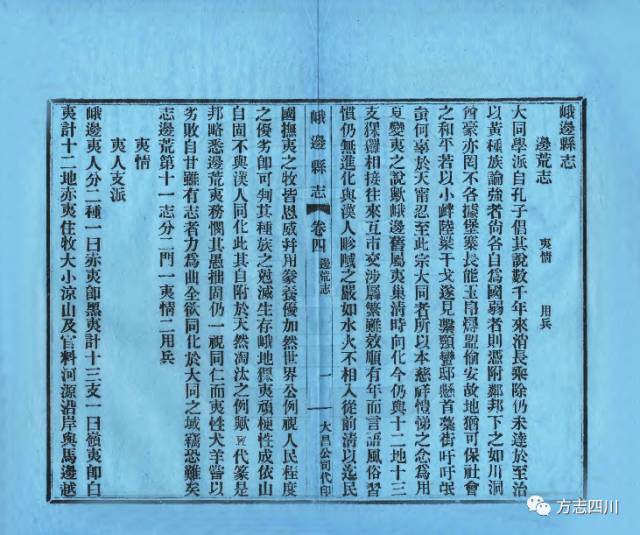 峨邊縣志
邊荒志　夷情　用兵
大同學派自孔子倡其說數千年來消長乘除仍未達於至治
以黃種族論強者尙各自為國弱者則憑附鄰邦下之如川洞
酋豪亦罔不各據堡寨長能玉帛㷼盟偷安故地猶可保社會
之和平若以小衅陸梁干戈遂見繫頸蠻邸懸首藁街吁吁氓
蚩何辜於天甯忍至此宗大同者所以本慈祥愷悌之念為用
夏變夷之說歟峨邊舊屬夷巢淸時向化今仍與十二地十三
支猓玀相接往來互市交涉屬繁雖效順有年而言語風俗習
慣仍無進化與漢人畛域之嚴如水火不相入從前淸以迄民
峨邊縣志　卷四　邊荒志　一　大昌公司代印
國撫夷之牧皆恩威幷用豢養優加然世界公例視人民程度
之優劣卽可判其種族之尅滅生存峨地猓夷頑梗性成依山
自固不與漢人同化此其自附於天然淘汰之例歟代篆是
邦略悉邊荒夷務憫其愚拙固仍一視同仁而夷性犬羊嘗以
劣敗自甘雖有志者力為曲全欲同化於大同之域竊恐難矣
志邊荒第十一志分二門一夷情二用兵
夷情
夷人支派
峨邊夷人分二種一曰赤夷卽黑夷計十三支一曰嶺夷卽白
夷計十二地赤夷住牧大小凉山及官料河源沿岸與馬邊越
方志四川